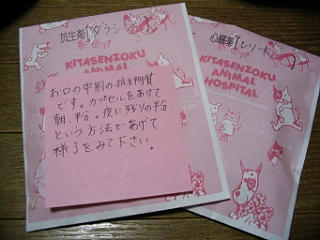 抗生剤
KITASENZOKU
ANIMAL
お口の中用の抗生物質
です。カプセルをあけて
朝、半分。夜に残りの半分
という方法であげて
様子をみて下さい。
心臓薬
KITASENZOKU
ANIMAL
HOSPITAL